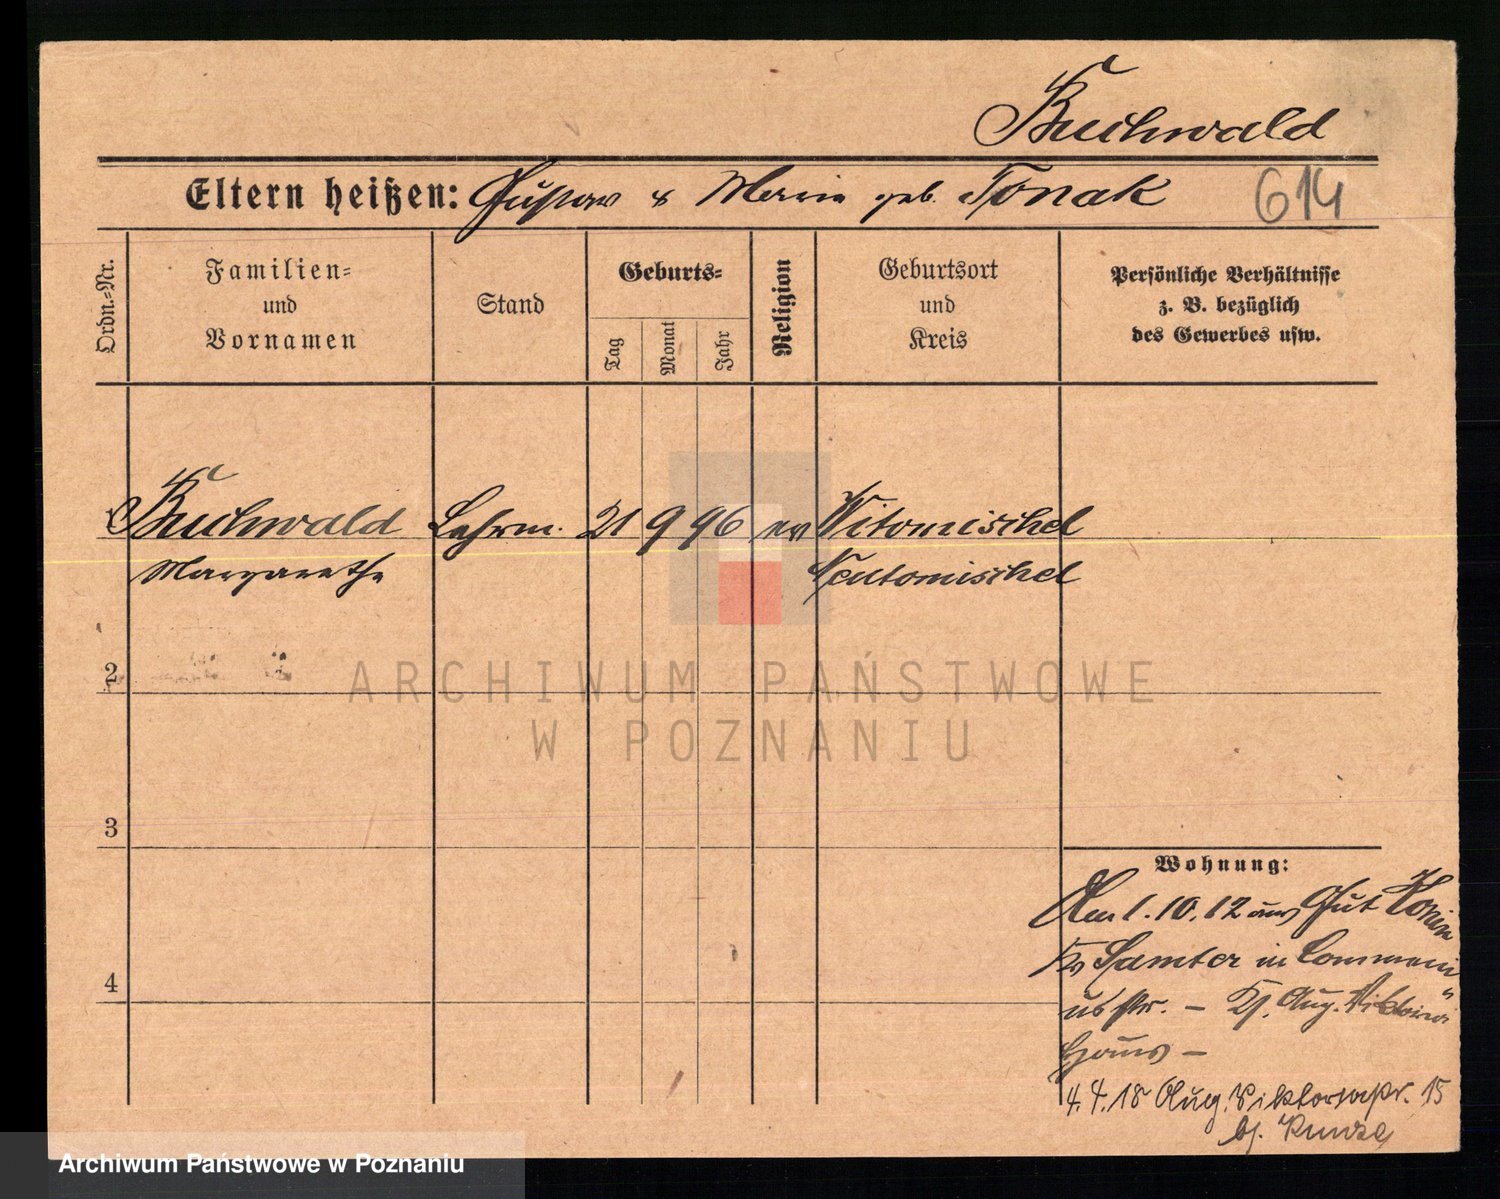 Buchwald
Eltern heißen: Gustav & Marie geb. Tonak
614
Ordn.=Nr.
Familien=
und
Vornamen
Stand
Geburts=
Tag
Monat
Jahr
Religion
Geburtsort
und
Kreis
Persönliche Verhältnisse
z. B. bezüglich
des Gewerbes usw.
1 Buchwald Lehrm. 21 9 96 ev Witomischel
Margarethe Neutomischel
2
ARCHIWUM PAŃSTWOWE
W POZNANIU
3
4
Wohnung:
Am 1.10.12 aus Gut
Kr Samter in Commeni
usstr. – Aug. Viktoria
Haus –
4.4.18 Aug. Viktoriastr. 15
bj.
Archiwum Państwowe w Poznaniu